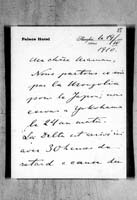 Palace Hotel
1910.
Ma chère Maman,
Nous partons ce soir
par la Mongolia
pour le Japon, nous
serons à Yokohama
le 24 au matin.
La Delta est arrivé ici
avec 30 heures de
retard à cause du